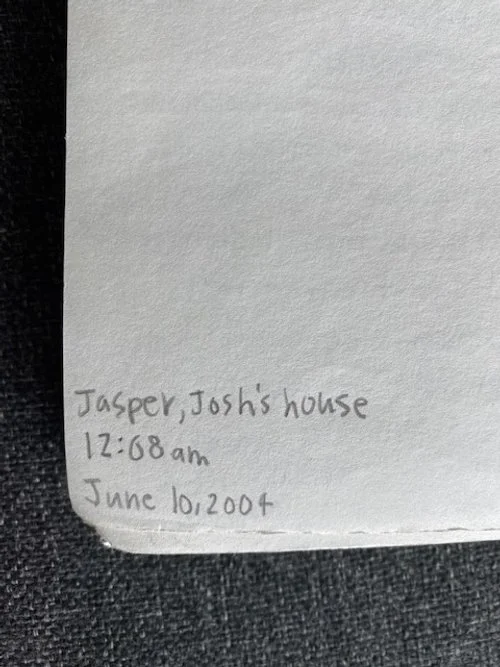 Jasper, Josh's house
12:08 am
June 10, 2004